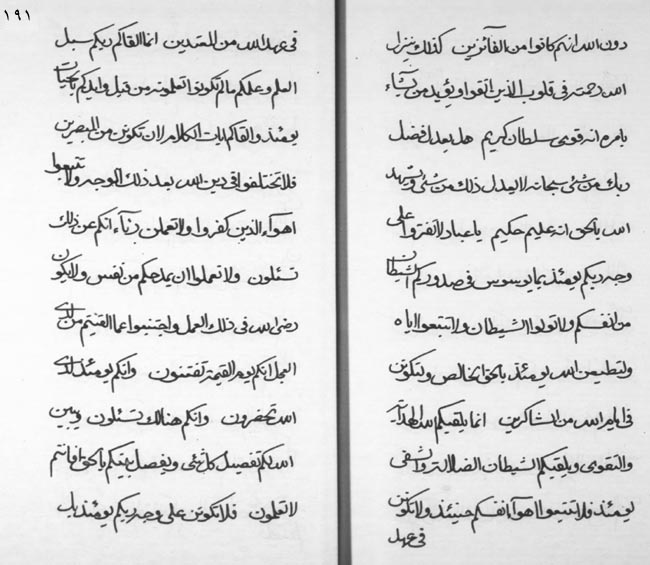 دون الله انهم كانوا من الفآئزين كذلك ينزل
الله رحمته في قلوب الذين اتقوا ويؤيد من يشآء
بامره انه قوى سلطان كريم هل يعدل فضل
ربك من شئ سبحانه لا يعدل ذلك من شئ ويشهد
الله بالحق انه عليم حكيم يا عباد لا تفتروا على
وجه ربكم يومئذ بما يوسوس في صدوركم الشيطان
من انفسكم ولا تولوا الشيطان ولا تتبعوا اياه
ولتطيعن الله يومئذ بالحق الخالص ولتكونن
في ايام الله من الشاكرين انما يلقيكم الله الهداية
والتقوى ويلقيكم الشيطان الضلالة والشقى
يومئذ فلا تتبعوا اهوآء انفسكم حينئذ ولا تكونن
في عهد
١٩١
في عهد الله من المعتدين انما القاكم ربكم سبل
العلم وعلمكم ما لم تكونوا تعلمونه من قبل وايدكم بآيات
يومئذ والقاكم ايات الكلام لان تكونن من المبصرين
فلا تختلفوا في دين الله بعد ذلك الوجه ولا تتبعوا
اهوآء الذين كفروا ولا تعملن ريآء انكم عن ذلك
تسئلون ولا تعملوا ان يمدحكم من نفس ولا يكون
رضى الله في ذلك العمل واجتنبوا عما القيتم من لدى
العجل انكم يوم القيمة تفتنون وانكم يومئذ لدى
الله تحضرون وانكم هنالك تسئلون ويبين
الله لكم تفصيل كل شئ ويفصل بينكم بالحق افانتم
لا تعلمون فلا تكونن على وجه ربكم يومئذ بل